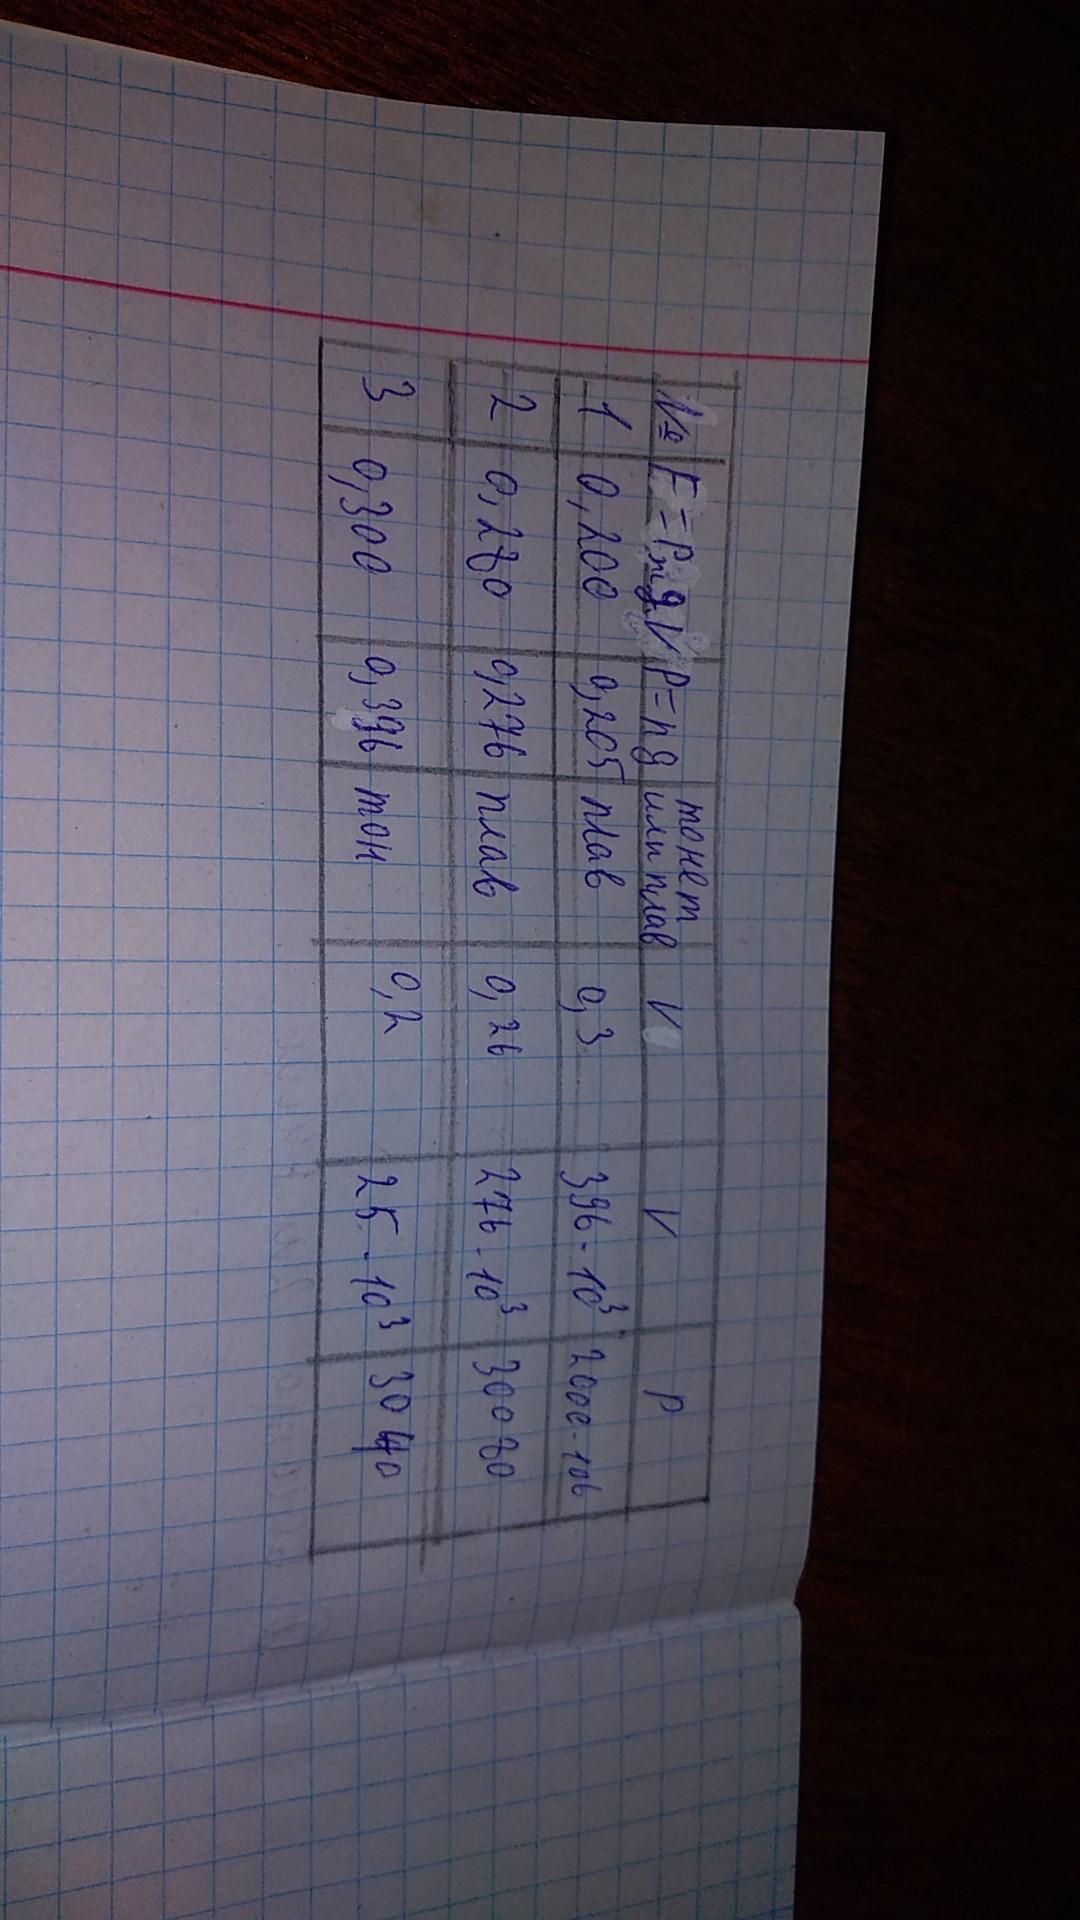 № F=PmgV P=mg тонет или плав V V P
1 0,200 0,205 плав 0,3 396·10³ 200·106
2 0,280 0,276 плав 0,26 276·10³ 30080
3 0,300 0,396 тон 0,2 25·10³ 3040